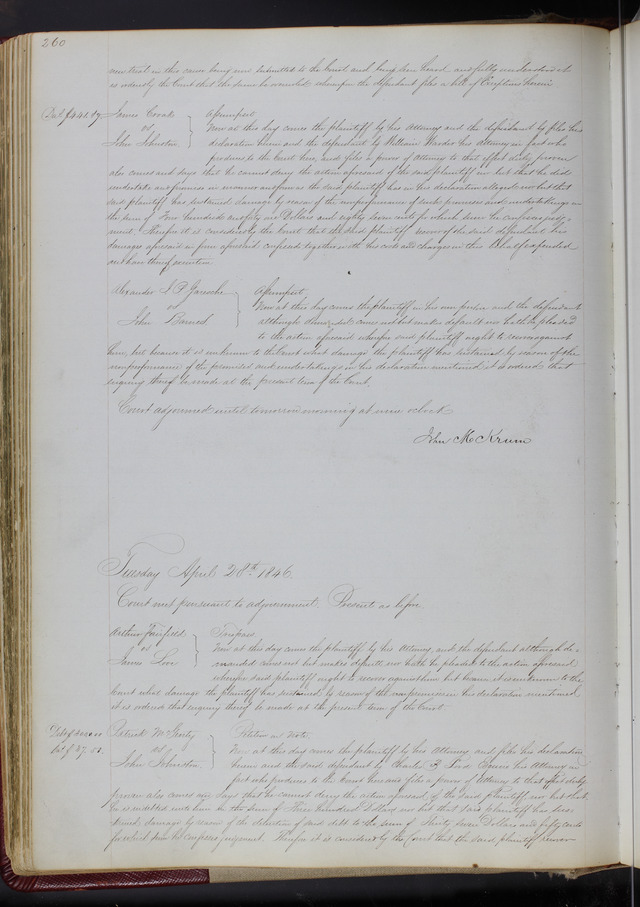 260
new trial in this cause being now submitted to the Court and being seen heard and fully understood it
is ordered by the Court that the same be overruled whereupon the defendant files a bill of Exceptions herein
Dam $441.87 James Cook } Assumpsit
vs Now at this day comes the plaintiff by his Attorney and files his
John Johnston declaration herein and the defendant by William his Attorney in fact who
produces to the Court here, and files a power of Attorney to that effect duly proven
also comes and says that he cannot deny the action aforesaid of the said plaintiff nor but that he did
undertake and promise in manner and form as the said plaintiff has in his declaration alleged nor but that
said plaintiff has sustained damage by reason of the nonperformance of such promises and undertakings in
the sum of Four hundred and forty one Dollars and eighty seven cents for which sum he confesses judg-
ment. Therefore it is considered by the Court that the said plaintiff recover of the said defendant his
damages aforesaid in form aforesaid confessed together with his costs and charges in this behalf expended
and have thereof execution.
Alexander J. P. } Assumpsit
vs Now at this day comes the plaintiff in his own proper and the defendant
John Barnes although demanded comes not but makes default nor hath he pleaded
to the action aforesaid wherefore said plaintiff ought to recover against
him, but because it is unknown to the Court what damage the plaintiff has sustained by reason of the
nonperformance of the promises and undertakings in his declaration mentioned it is ordered that
enquiry thereof be made at the present term of the Court.
Court adjourned until tomorrow morning at nine oclock
John M Krum
Tuesday April 28th 1846.
Court met pursuant to adjournment. Present as before.
Arthur Fairfield } Trespass
vs Now at this day comes the plaintiff by his Attorney, and the defendant although de-
James manded comes not but makes default nor hath he pleaded to the action aforesaid
wherefore said plaintiff ought to recover against him but because it is unknown to the
Court what damage the plaintiff has sustained by reason of the in his declaration mentioned
it is ordered that enquiry thereof be made at the present term of the Court.
Debt $300.00 Patrick McGinty } Petition on Note
Dam $37.50 vs Now at this day comes the plaintiff by his Attorney and files his declaration
John Johnston herein and the said defendant by Charles his Attorney in
fact who produces to the Court here and files a power of Attorney to that effect duly
proven also comes and says that he cannot deny the action aforesaid of the said Plaintiff nor but that
he is indebted unto him in the sum of Three hundred Dollars nor but that said plaintiff has sus-
tained damage by reason of the detention of said debt to the sum of Thirty seven Dollars and fifty cents
for which sum he confesses judgment. Therefore it is considered by the Court that the said plaintiff recover